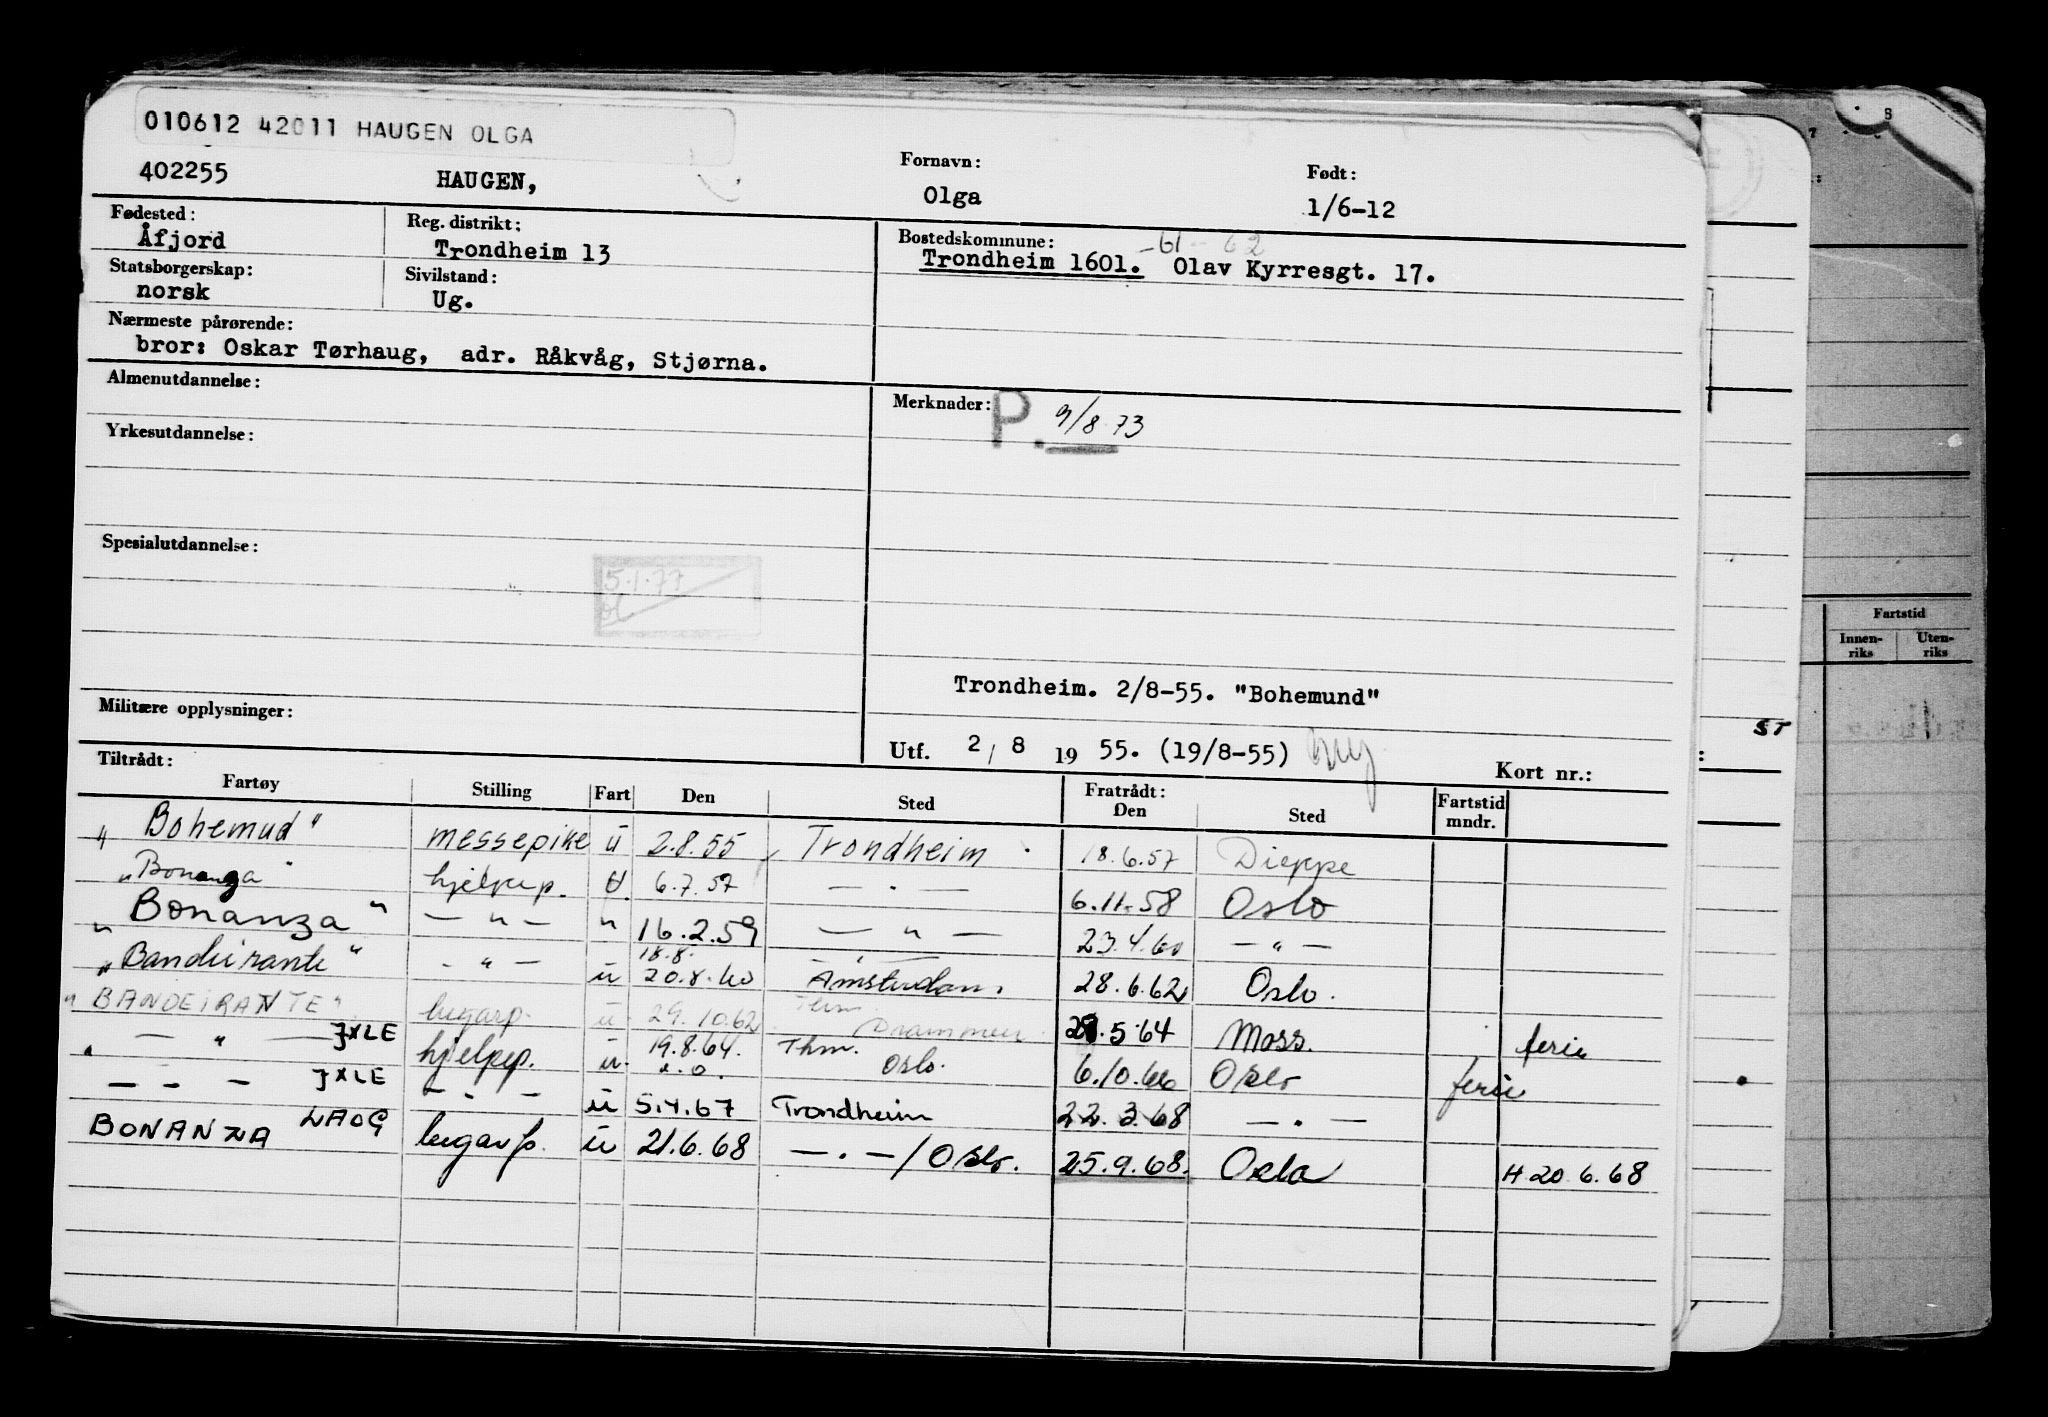 010612 42011 HAUGEN OLGA
402255 HAUGEN, Fornavn: Olga Født: 1/6-12
Fødested: Åfjord Reg. distrikt: Trondheim 13 Bostedskommune: -61-62
Trondheim 1601. Olav Kyrresgt. 17.
Statsborgerskap: norsk Sivilstand: Ug.
Nærmeste pårørende:
bror: Oskar Tørhaug, adr. Råkvåg, Stjørna.
Almenutdannelse:
Merknader: P. 9/8 73
Yrkesutdannelse:
Spesialutdannelse:
5.1.77
Trondheim. 2/8-55. "Bohemund"
Militære opplysninger:
Utf. 2/8 1955. (19/8-55)
Tiltrådt: Kort nr.:
Fartøy Stilling Fart Den Sted Fratrådt: Den Sted Fartstid mndr.
" Bohemud " messepike u 2.8.55 Trondheim 18.6.57 Dieppe
" Bonanza " hjelpep. u. 6.7.57 — . — 6.11.58 Oslo
" Bonanza " — " — " 16.2.59 — " — 23.4.60 — " —
" Bandeirante " - " — u 18.8. 20.8.60 Amsterdam. 28.6.62 Oslo.
" BANDEIRANTE " lugarp. u 29.10.62 Thm Drammen 28.5.64 Moss.
— " — JXLE hjelpep. u. 19.8.64. Thm. Oslo. 6.10.66 Oslo ferie
— - — JXLE - . - u 5.4.67 Trondheim 22.3.68 — . — ferie
BONANZA LAOG lugarp. u 21.6.68 — . — / Oslo. 25.9.68. Oslo H 20.6.68
Fartstid
Innen-riks Uten-riks
ST